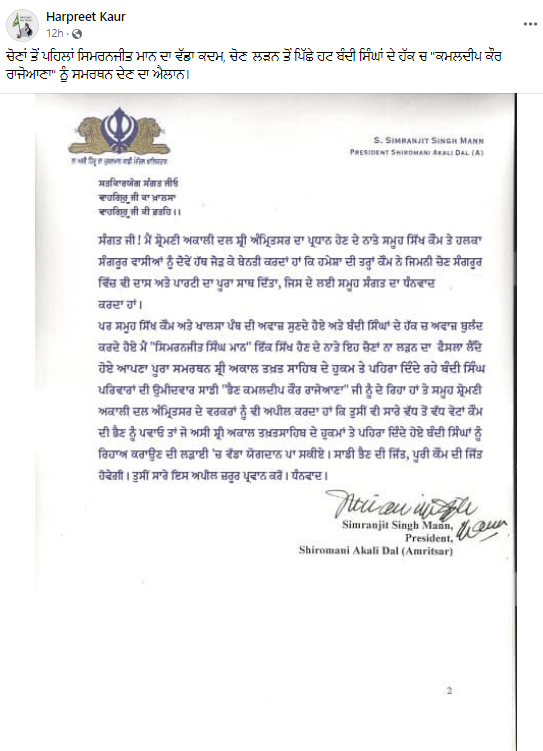 Harpreet Kaur
12h ·
ਚੋਣਾਂ ਤੋਂ ਪਹਿਲਾਂ ਸਿਮਰਨਜੀਤ ਮਾਨ ਦਾ ਵੱਡਾ ਕਦਮ, ਚੋਣ ਲੜਨ ਤੋਂ ਪਿੱਛੇ ਹਟ ਬੰਦੀ ਸਿੰਘਾਂ ਦੇ ਹੱਕ ਚ "ਕਮਲਦੀਪ ਕੌਰ
ਰਾਜੋਆਣਾ" ਨੂੰ ਸਮਰਥਨ ਦੇਣ ਦਾ ਐਲਾਨ।
S. SIMRANJIT SINGH MANN
PRESIDENT SHIROMANI AKALI DAL (A)
ਸਤਕਾਰਯੋਗ ਸੰਗਤ ਜੀਓ
ਵਾਹਿਗੁਰੂ ਜੀ ਕਾ ਖ਼ਾਲਸਾ
ਵਾਹਿਗੁਰੂ ਜੀ ਕੀ ਫ਼ਤਹਿ।।
ਸੰਗਤ ਜੀ! ਮੈਂ ਸ਼੍ਰੋਮਣੀ ਅਕਾਲੀ ਦਲ ਸ਼੍ਰੀ ਅੰਮ੍ਰਿਤਸਰ ਦਾ ਪ੍ਰਧਾਨ ਹੋਣ ਦੇ ਨਾਤੇ ਸਮੂਹ ਸਿੱਖ ਕੌਮ ਤੇ ਹਲਕਾ
ਸੰਗਰੂਰ ਵਾਸੀਆਂ ਨੂੰ ਦੋਵੇਂ ਹੱਥ ਜੋੜ ਕੇ ਬੇਨਤੀ ਕਰਦਾਂ ਹਾਂ ਕਿ ਹਮੇਸ਼ਾ ਦੀ ਤਰ੍ਹਾਂ ਕੌਮ ਨੇ ਜ਼ਿਮਨੀ ਚੋਣ ਸੰਗਰੂਰ
ਵਿੱਚ ਵੀ ਦਾਸ ਅਤੇ ਪਾਰਟੀ ਦਾ ਪੂਰਾ ਸਾਥ ਦਿੱਤਾ, ਜਿਸ ਦੇ ਲਈ ਸਮੂਹ ਸੰਗਤ ਦਾ ਧੰਨਵਾਦ
ਕਰਦਾ ਹਾਂ।
ਪਰ ਸਮੂਹ ਸਿੱਖ ਕੌਮ ਅਤੇ ਖਾਲਸਾ ਪੰਥ ਦੀ ਅਵਾਜ਼ ਸੁਣਦੇ ਹੋਏ ਅਤੇ ਬੰਦੀ ਸਿੰਘਾਂ ਦੇ ਹੱਕ ਚ ਅਵਾਜ਼ ਬੁਲੰਦ
ਕਰਦੇ ਹੋਏ ਮੈਂ "ਸਿਮਰਨਜੀਤ ਸਿੰਘ ਮਾਨ" ਇੱਕ ਸਿੱਖ ਹੋਣ ਦੇ ਨਾਤੇ ਇਹ ਚੋਣਾਂ ਨਾ ਲੜਨ ਦਾ ਫੈਸਲਾ ਲੈਂਦੇ
ਹੋਏ ਆਪਣਾ ਪੂਰਾ ਸਮਰਥਨ ਸ਼੍ਰੀ ਅਕਾਲ ਤਖ਼ਤ ਸਾਹਿਬ ਦੇ ਹੁਕਮ ਤੇ ਪਹਿਰਾ ਦਿੰਦੇ ਰਹੇ ਬੰਦੀ ਸਿੰਘ
ਪਰਿਵਾਰਾਂ ਦੀ ਉਮੀਦਵਾਰ ਸਾਡੀ "ਭੈਣ ਕਮਲਦੀਪ ਕੌਰ ਰਾਜੋਆਣਾ" ਜੀ ਨੂੰ ਦੇ ਰਿਹਾ ਹਾਂ ਤੇ ਸਮੂਹ ਸ਼੍ਰੋਮਣੀ
ਅਕਾਲੀ ਦਲ ਅੰਮ੍ਰਿਤਸਰ ਦੇ ਵਰਕਰਾਂ ਨੂੰ ਵੀ ਅਪੀਲ ਕਰਦਾ ਹਾਂ ਕਿ ਤੁਸੀਂ ਵੀ ਸਾਰੇ ਵੱਧ ਤੋਂ ਵੱਧ ਵੋਟਾਂ ਕੌਮ
ਦੀ ਭੈਣ ਨੂੰ ਪਵਾਓ ਤਾਂ ਜੋ ਅਸੀਂ ਸ਼੍ਰੀ ਅਕਾਲ ਤਖ਼ਤਸਾਹਿਬ ਦੇ ਹੁਕਮਾਂ ਤੇ ਪਹਿਰਾ ਦਿੰਦੇ ਹੋਏ ਬੰਦੀ ਸਿੰਘਾਂ ਨੂੰ
ਰਿਹਾਅ ਕਰਾਉਣ ਦੀ ਲੜਾਈ 'ਚ ਵੱਡਾ ਯੋਗਦਾਨ ਪਾ ਸਕੀਏ। ਸਾਡੀ ਭੈਣ ਦੀ ਜਿੱਤ, ਪੂਰੀ ਕੌਮ ਦੀ ਜਿੱਤ
ਹੋਵੇਗੀ। ਤੁਸੀਂ ਸਾਰੇ ਇਸ ਅਪੀਲ ਜ਼ਰੂਰ ਪ੍ਰਵਾਨ ਕਰੋਂ। ਧੰਨਵਾਦ।
Simranjit Singh Mann,
President,
Shiromani Akali Dal (Amritsar)
2